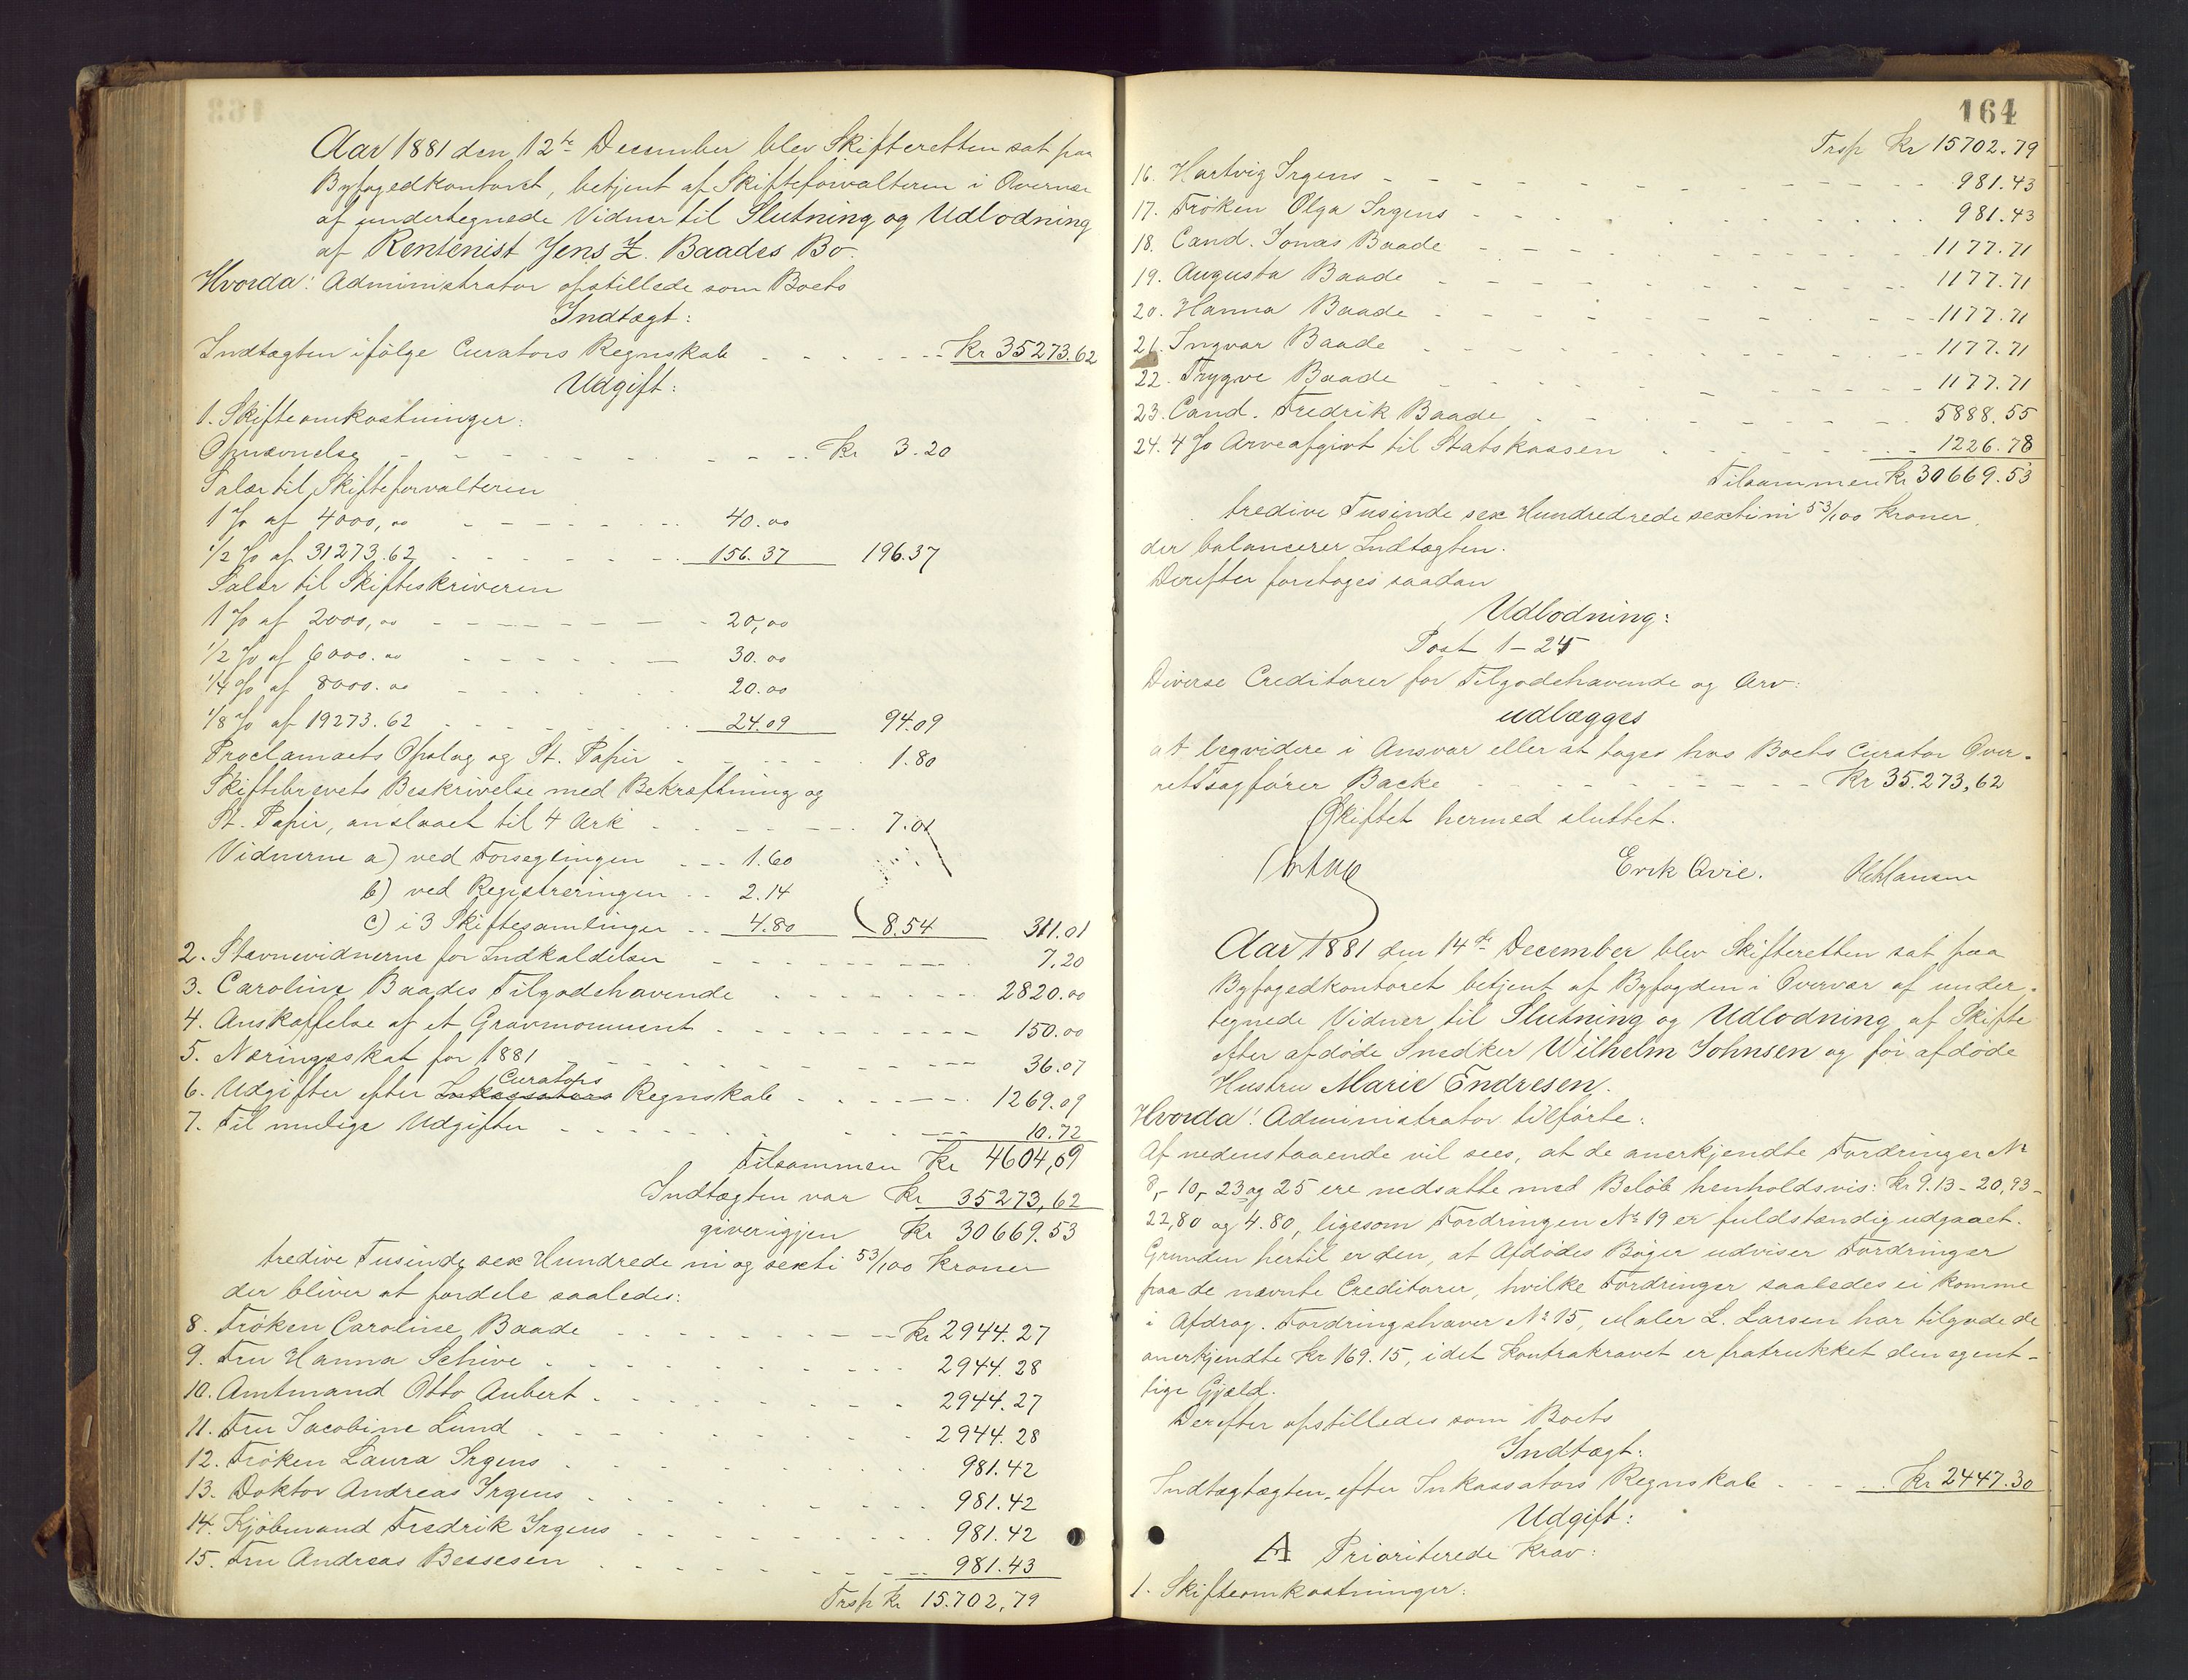 Aar 1881 den 12te December blev Skifteretten sat paa
Byfogedkontoret, betjent af Skifteforvalteren i Overvær
af undertegnede Vidner til Slutning og Udlodning
af Rentenist Jens Z. Baades Bo.
Hvorda! Administrator opstillede som Boets
Indtægt:
Indtægten ifølge Curators Regnskab Kr 35273.62
Udgift:
1. Skifteomkostninger:
Opnævnelse Kr 3.20
Salær til Skifteforvalteren
1 % af 4000,00 40.00
1/2 % af 31273.62 156.37 196.37
Salær til Skifteskriveren
1 % af 2000,00 20,00
1/2 % af 6000.00 30.00
1/4 % af 8000.00 20.00
1/8 % af 19273.62 24.09 94.09
Proclamaets Opslag og St. Papir 1.80
Skiftebrevets Beskrivelse med Bekræftning og
St. Papir, anslaaet til 4 Ark 7.01
Vidnerne a) ved Forseglingen 1.60
b) ved Registreringen 2.14
c) i 3 Skiftesamlinger 4.80 8.54 311.01
2. Stævnevidnerne for Indkaldelsen 7.20
3. Caroline Baades Tilgodehavende 2820.00
4. Anskaffelse af et Gravmonument 150.00
5. Næringsskat for 1881 36.07
Curators
6. Udgifter efter Inkassators Regnskab 1269.09
7. Til mulige Udgifter 10.72
Tilsammen Kr 4604,09
Indtægten var Kr 35273,62
giver igjen Kr 30669.53
tredive Tusinde sex Hundrede ni og sexti 53/100 Kroner
der bliver at fordele saaledes:
8. Frøken Caroline Baade Kr 2944.27
9. Fru Hanna Schive 2944.28
10. Amtmand Otto Aubert 2944.27
11. Fru Jacobine Lund 2944.28
12. Frøken Laura Irgens 981.42
13. Doktor Andreas Irgens 981.42
14. Kjøbmand Fredrik Irgens 981.42
15. Fru Andreas Bessesen 981.43
Trsp Kr 15.702,79
164
Trsp Kr 15702.79
16. Hartvig Irgens 981.43
17. Frøken Olga Irgens 981.43
18. Cand. Jonas Baade 1177.71
19. Augusta Baade 1177.71
20. Hanna Baade 1177.71
21. Ingvar Baade 1177.71
22. Trygve Baade 1177.71
23. Cand. Fredrik Baade 5888.55
24. 4 % Arveafgivt til Statskassen 1226.78
Tilsammen Kr 30669.53
tredive Tusinde sex Hundredrede sextini 53/100 Kroner,
der balancerer Indtægten.
Derefter foretoges saadan
Udlodning:
Post 1-24
Diverse Creditorer for Tilgodehavende og Arv:
udlægges
at liqvidere i Ansvar eller at tages hos Boets Curator Over-
retssagfører Backe Kr 35.273,62
Skiftet hermed sluttet.
Erik Qvie.
Aar 1881 den 14de December blev Skifteretten sat paa
Byfogedkontoret betjent af Byfogden i Overvær af under-
tegnede Vidner til Slutning og Udlodning af Skifte
efter afdøde Snedker Wilhelm Johnsen og før afdøde
Hustru Marie Endresen.
Hvorda! Administrator tilførte:
Af nedenstaaende vil sees, at de anerkjendte Fordringer No
8,- 10,- 23 og 25 ere nedsatte med Beløb henholdsvis: Kr 9.13 - 20,93-
22,80 og 4.80, ligesom Fordringen No 19 er fuldstændig udgaaet.
Grunden hertil er den, at Afdødes Bøger udviser Fordringer
paa de nævnte Creditorer, hvilke Fordringer saaledes ei komme
i Afdrag. Fordringshaver No 15, Maler L. Larsen har tilgode de
anerkjendte Kr 169.15, idet Kontrakravet er fratrukket den egent-
lige Gjæld.
Derefter opstilledes som Boets
Indtægt:
Indtægtægten, efter Inkassators Regnskab Kr 2447.30
Udgift:
A Prioriterede Krav:
1. Skifteomkostninger: